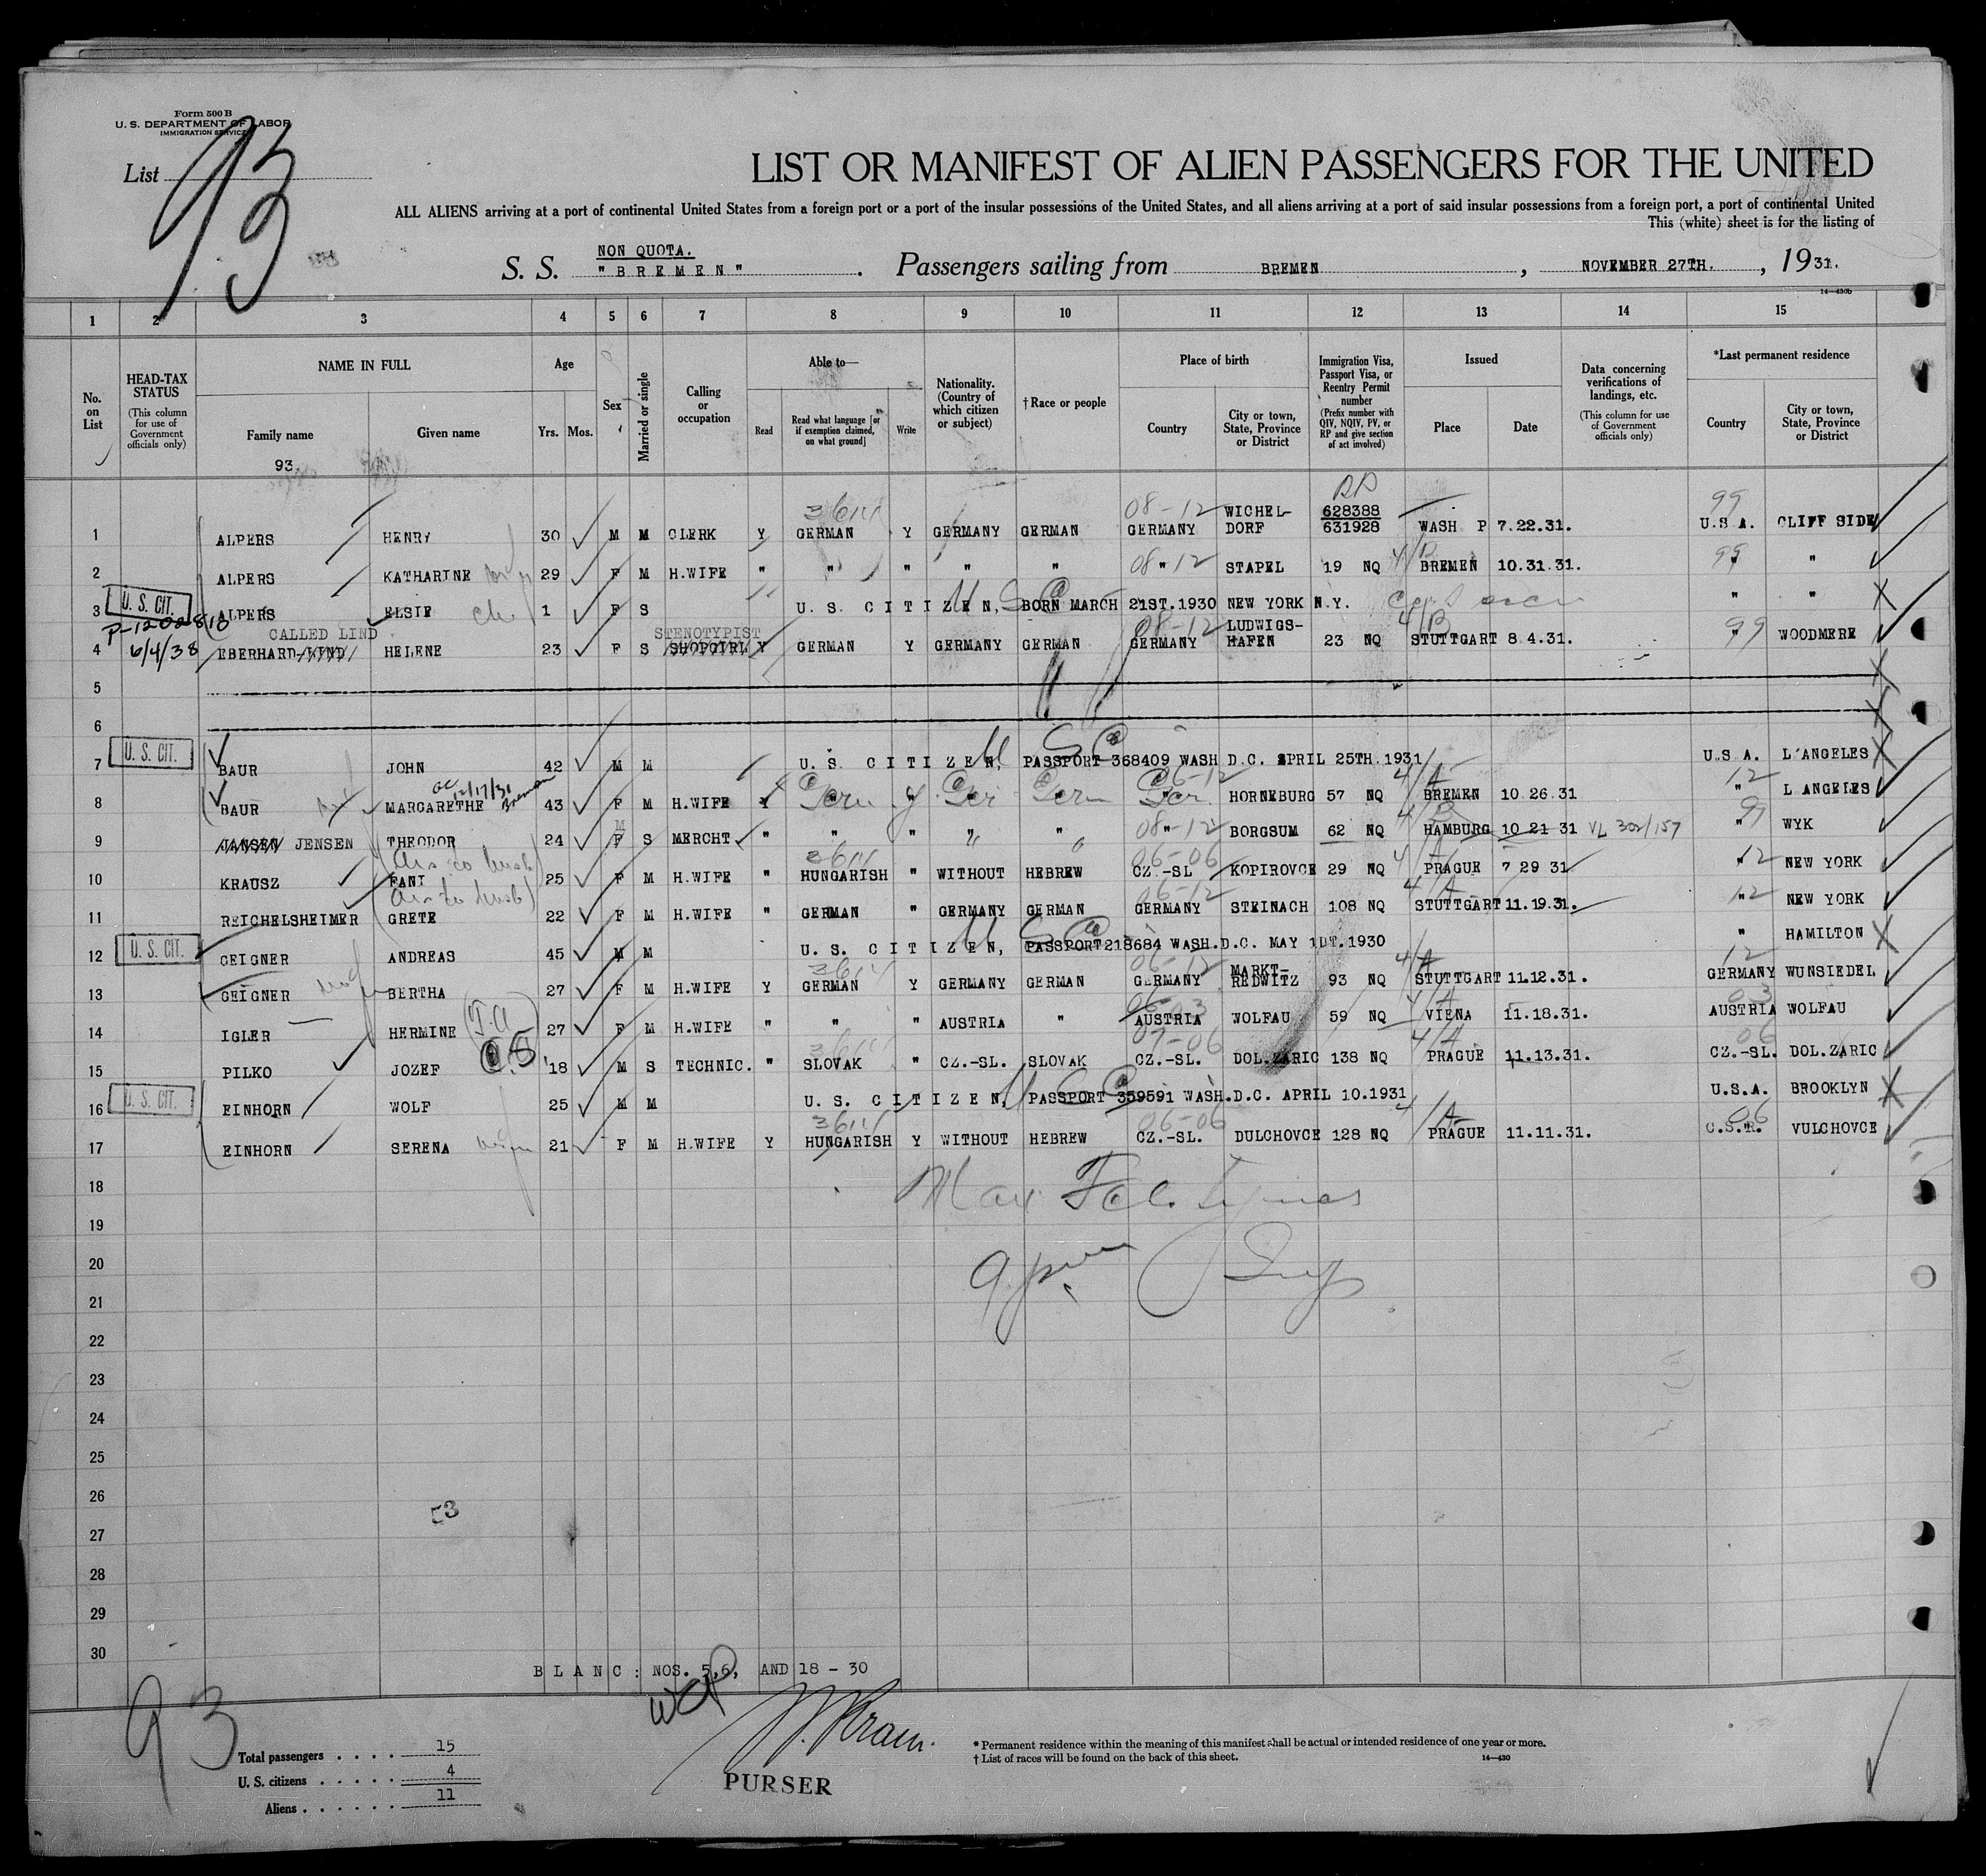 Form 500 B
U. S. DEPARTMENT OF LABOR
IMMIGRATION SERVICE
List 93
LIST OR MANIFEST OF ALIEN PASSENGERS FOR THE UNITED
ALL ALIENS arriving at a port of continental United States from a foreign port or a port of the insular possessions of the United States, and all aliens arriving at a port of said insular possessions from a foreign port, a port of continental United
This (white) sheet is for the listing of
NON QUOTA.
S. S. "BREMEN". Passengers sailing from BREMEN, NOVEMBER 27TH., 1931.
14—430b
1 2 3 4 5 6 7 8 9 10 11 12 13 14 15
No. on List
HEAD-TAX STATUS (This column for use of Government officials only)
NAME IN FULL
Family name
Given name
93.
Age
Yrs. Mos.
Sex
Married or single
Calling or occupation
Able to—
Read
Read what language [or if exemption claimed, on what ground]
Write
Nationality. (Country of which citizen or subject)
†Race or people
Place of birth
Country
City or town, State, Province or District
Immigration Visa, Passport Visa, or Reentry Permit number (Prefix number with QIV, NQIV, PV, or RP and give section of act involved)
Issued
Place
Date
Data concerning verifications of landings, etc. (This column for use of Government officials only)
*Last permanent residence
Country
City or town, State, Province or District
3614 08-12 WICHEL- RP 628388 99
1 ALPERS HENRY 30 M M CLERK Y GERMAN Y GERMANY GERMAN GERMANY DORF 631928 WASH P 7.22.31. U.S.A. CLIFF SIDE
2 ALPERS KATHARINE 29 F M H.WIFE " " " " " 08-12 " STAPEL 19 NQ 4/B BREMEN 10.31.31. 99 " "
U. S. CIT.
3 ALPERS ELSIE ch. 1 F S U. S. CITIZEN, BORN MARCH 21ST.1930 NEW YORK N.Y. " "
P-1202810
CALLED LIND STENOTYPIST 08-12 LUDWIGS- 4/B
6/4/38
4 EBERHARD-LIND HELENE 23 F S SHOPGIRL Y GERMAN Y GERMANY GERMAN GERMANY HAFEN 23 NQ STUTTGART 8 4.31. " 99 WOODMERE
5
6
U. S. CIT.
7 BAUR JOHN 42 M M U. S. CITIZEN, PASSPORT 368409 WASH D.C. APRIL 25TH.1931 U.S A. L'ANGELES
12/17/31 Bremen 06-12 4/A 12
8 BAUR MARGARETHE 43 F M H.WIFE Y Germ y Ger Germ Ger. HORNEBURG 57 NQ BREMEN 10 26.31 " L ANGELES
M 08-12 4/B 99
9 JANSEN JENSEN THEODOR 24 F S MERCHT " " " " " " BORGSUM 62 NQ HAMBURG 10 21 31 VL 302/157 " WYK
3614 06-06 4/A 12
10 KRAUSZ FANI 25 F M H.WIFE " HUNGARISH " WITHOUT HEBREW CZ.-SL KOPIROVCE 29 NQ PRAGUE 7 29 31 " NEW YORK
06-12 4/A 12
11 REICHELSHEIMER GRETE 22 F M H.WIFE " GERMAN " GERMANY GERMAN GERMANY STEINACH 108 NQ STUTTGART 11.19.31. " NEW YORK
U. S. CIT.
12 GEIGNER ANDREAS 45 M M U. S. CITIZEN, PASSPORT 218684 WASH.D.C. MAY 1DT.1930 " HAMILTON
3614 06-12 MARKT- 4/A 12
13 GEIGNER BERTHA 27 F M H.WIFE Y GERMAN Y GERMANY GERMAN GERMANY REDWITZ 93 NQ STUTTGART 11.12.31. GERMANY WUNSIEDEL
06-03 4/A 03
14 IGLER HERMINE 27 F M H.WIFE " " " AUSTRIA " AUSTRIA WOLFAU 59 NQ VIENA 11.18.31. AUSTRIA WOLFAU
3614 07-06 4/A 06
15 PILKO JOZEF 18 M S TECHNIC. " SLOVAK " CZ.-SL. SLOVAK CZ.-SL. DOL.ZARIC 138 NQ PRAGUE 11.13.31. CZ.-SL. DOL.ZARIC
U. S. CIT.
16 EINHORN WOLF 25 M M U. S. CITIZEN, PASSPORT 359591 WASH.D.C. APRIL 10.1931 U.S.A. BROOKLYN
3614 06-06 4/A 06
17 EINHORN SERENA 21 F M H.WIFE Y HUNGARISH Y WITHOUT HEBREW CZ.-SL. DULCHOVCE 128 NQ PRAGUE 11.11.31. C.S.R. VULCHOVCE
18
19
20
21
22
23
24
25
26
53
27
28
29
30
BLANC: NOS. 5,6, AND 18 - 30
93
Total passengers . . . . 15
U. S. citizens . . . . . 4
Aliens . . . . . . 11
PURSER
* Permanent residence within the meaning of this manifest shall be actual or intended residence of one year or more.
† List of races will be found on the back of this sheet.
14—430